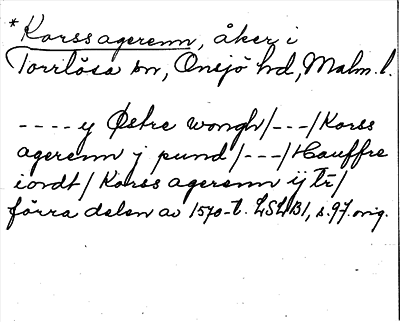 *Korssagerenn, åker i
Torrlösa sn, Onsjö hd, Malm. l.
----y Østre wongh/---/Korss
agerenn j pund/---/Hauffre
iordt/Korss agerenn ij tr/
förra delen av 1570-t. LSLB1, s. 97 orig.